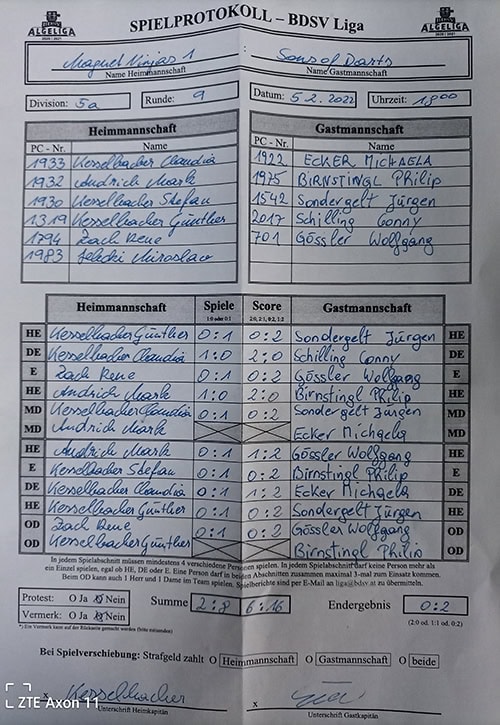 ALGELIGA
SPIELPROTOKOLL – BDSV Liga
ALGELIGA
Magnet Ninjas 1 : Sons of Darts
Name Heimmannschaft Name Gastmannschaft
Division: 5a Runde: 9 Datum: 5.2.2022 Uhrzeit: 18:00
Heimmannschaft Gastmannschaft
PC - Nr. Name PC - Nr. Name
1933 Kesselbacher Claudia 1922 ECKER MICHAELA
1932 Andrich Mark 1975 BIRNSTINGL Philip
1930 Kesselbacher Stefan 1542 Sondergelt Jürgen
1319 Kesselbacher Günther 2017 Schilling Conny
1794 Zach Rene 701 Gössler Wolfgang
1983 Miroslav
Heimmannschaft Spiele Score Gastmannschaft
1:0 oder 0:1 2:0, 2:1, 0:2, 1:2
HE Kesselbacher Günther 0:1 0:2 Sondergelt Jürgen HE
DE Kesselbacher Claudia 1:0 2:0 Schilling Conny DE
E Zach Rene 0:1 0:2 Gössler Wolfgang E
HE Andrich Mark 1:0 2:0 Birnstingl Philip HE
MD Kesselbacher Claudia 0:1 0:2 Sondergelt Jürgen MD
MD Andrich Mark Ecker Michaela MD
HE Andrich Mark 0:1 1:2 Gössler Wolfgang HE
E Kesselbacher Stefan 0:1 0:2 Birnstingl Philip E
DE Kesselbacher Claudia 0:1 1:2 Ecker Michaela DE
HE Kesselbacher Günther 0:1 0:2 Sondergelt Jürgen HE
OD Zach Rene 0:1 0:2 Gössler Wolfgang OD
OD Kesselbacher Günther Birnstingl Philip OD
In jedem Spielabschnitt müssen mindestens 4 verschiedene Personen spielen. In jedem Spielabschnitt darf keine Person mehr als
ein Einzel spielen, egal ob HE, DE oder E. Eine Person darf in beiden Abschnitten zusammen maximal 3-mal zum Einsatz kommen.
Beim OD kann auch 1 Herr und 1 Dame im Team spielen. Spielberichte sind per E-Mail an liga@bdsv.at zu übermitteln.
Protest: O Ja O Nein Summe 2:8 6:16 Endergebnis 0:2
Vermerk: O Ja O Nein (2:0 od. 1:1 od. 0:2)
*) Ein Vermerk kann auf der Rückseite gemacht werden (bitte ankreuzen)
Bei Spielverschiebung: Strafgeld zahlt O Heimmannschaft O Gastmannschaft O beide
x Kesselbacher x
Unterschrift Heimkapitän Unterschrift Gastkapitän
ZTE Axon 11